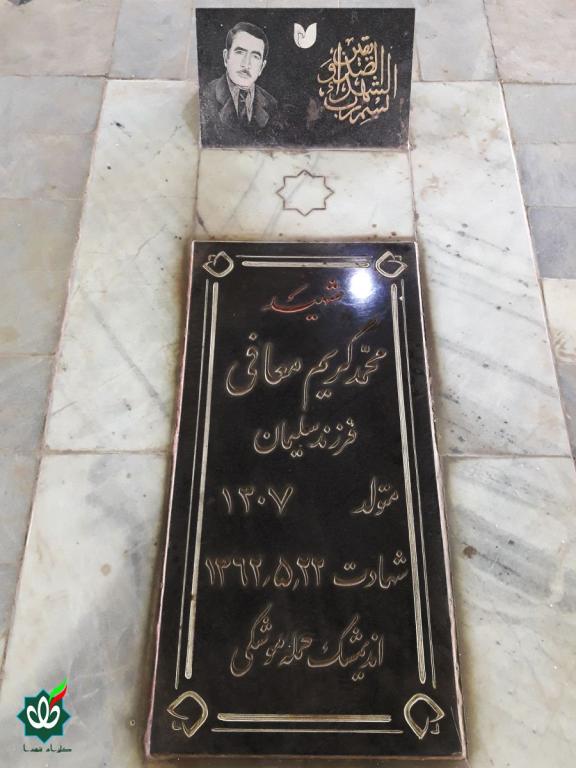 بسم رب الشهداء و الصدیقین
شهید
محمد کریم معافی
فرزند سلیمان
متولد ۱۳۰۷
شهادت ۱۳۶۲٫۵٫۲۲
اندیمشک حمله موشکی
گلزار شهدا